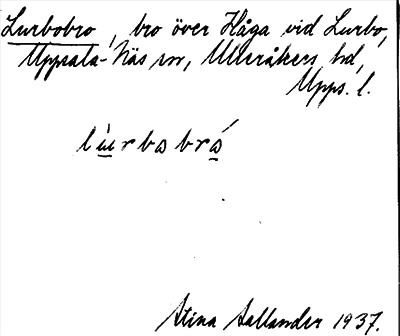 Lurbobro, bro över Håga vid Lurbo,
Uppsala-Näs sn, Ulleråkers hd,
Upps. l.
lùrbobró
Stina Aallander 1937.